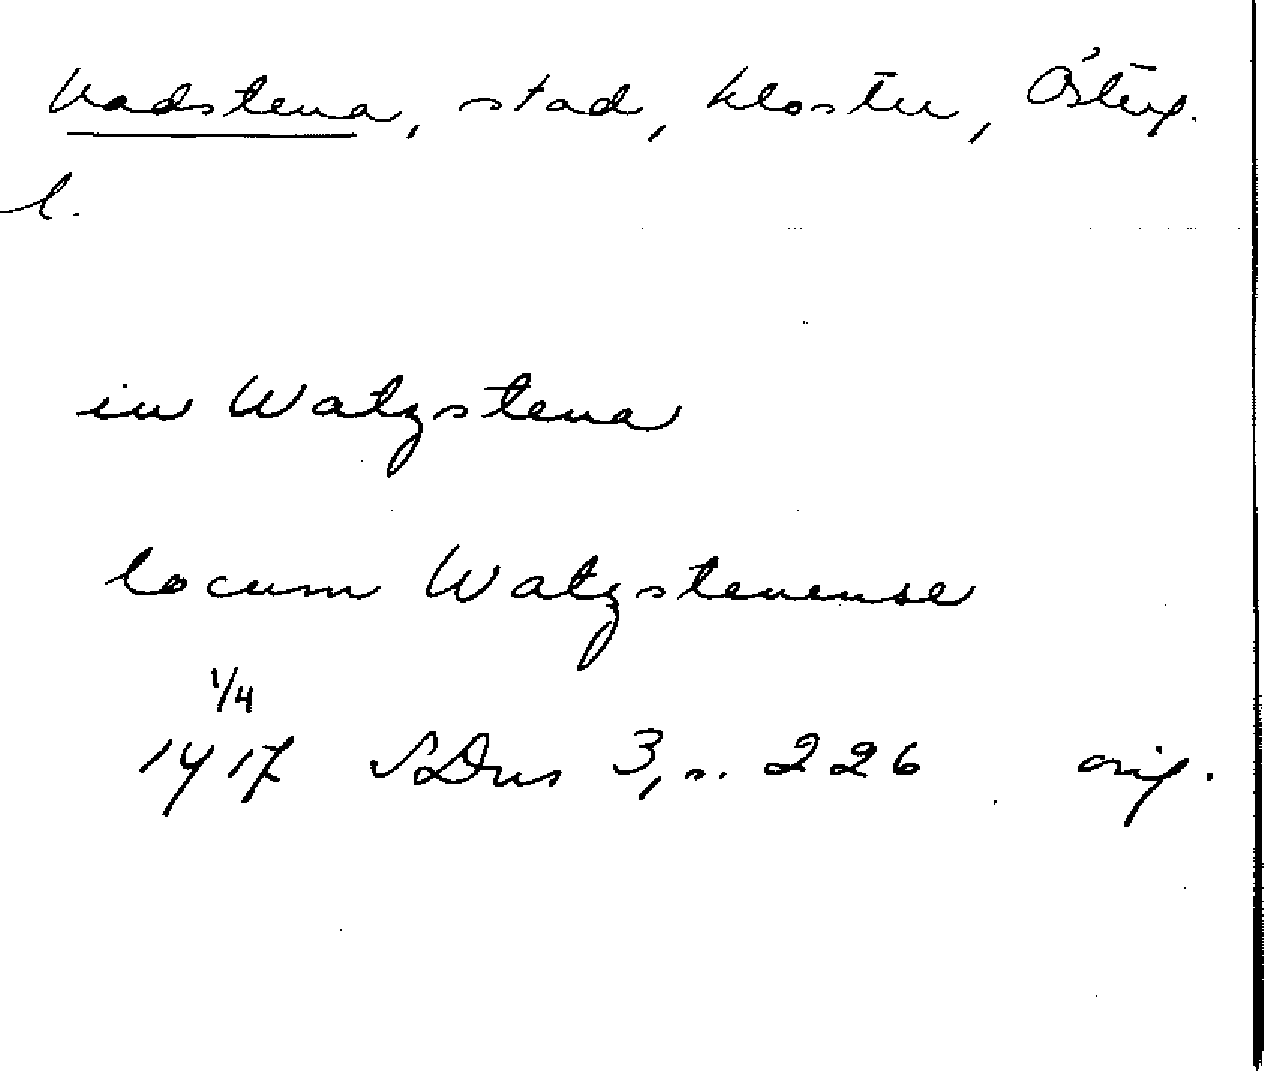 Vadstena, stad, kloster, Österg.
l.
in Watzstena
locum Watzstenense
1/4
1417 SDns 3, s. 226 orig.